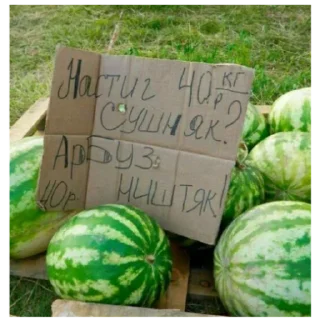 Настиг 40р кг
сушняк?
Арбуз
40р. ништяк!